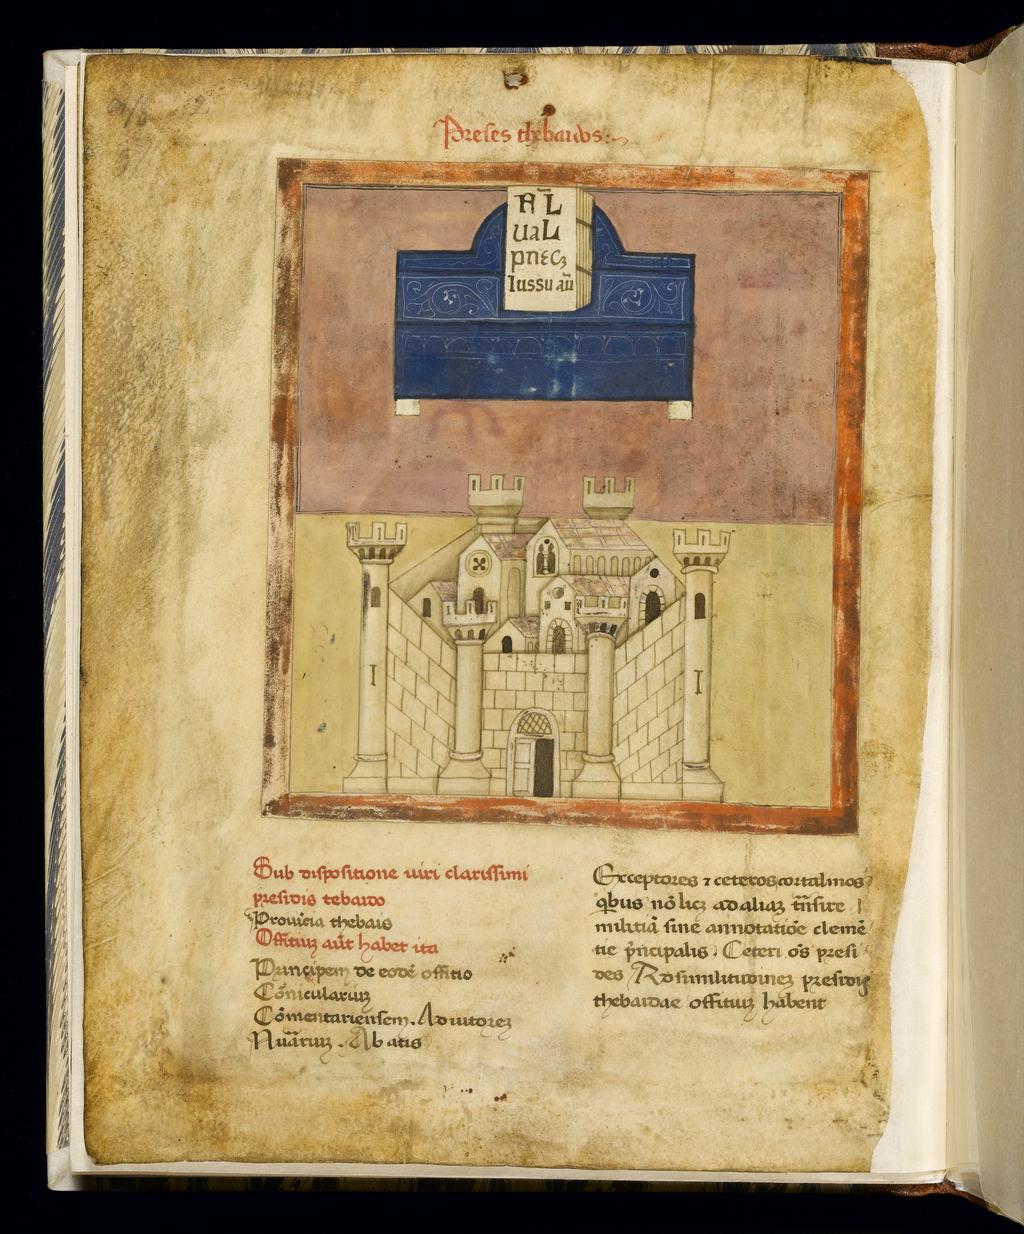 Preses thebaidos
FL
uaL
pnecʒ
Iussu aū
Sub dispositione uiri clarissimi
presidis tebaido
Prouīcia thebais
Offitiuʒ aūt habet ita
Principem de eodē offitio
Cōniculariuʒ
Cōmentariensem. Adiutoreʒ
Nūariuʒ. Ab atis
Exceptores ⁊ ceteros cortalinos
qƀus nō licʒ ad aliaʒ trñsire
militiā sine annotatiōe clemē
tie p̄ncipalis. Ceteri ōs presi
des Ad similitudineʒ presidis
thebaidae offitiuʒ habent